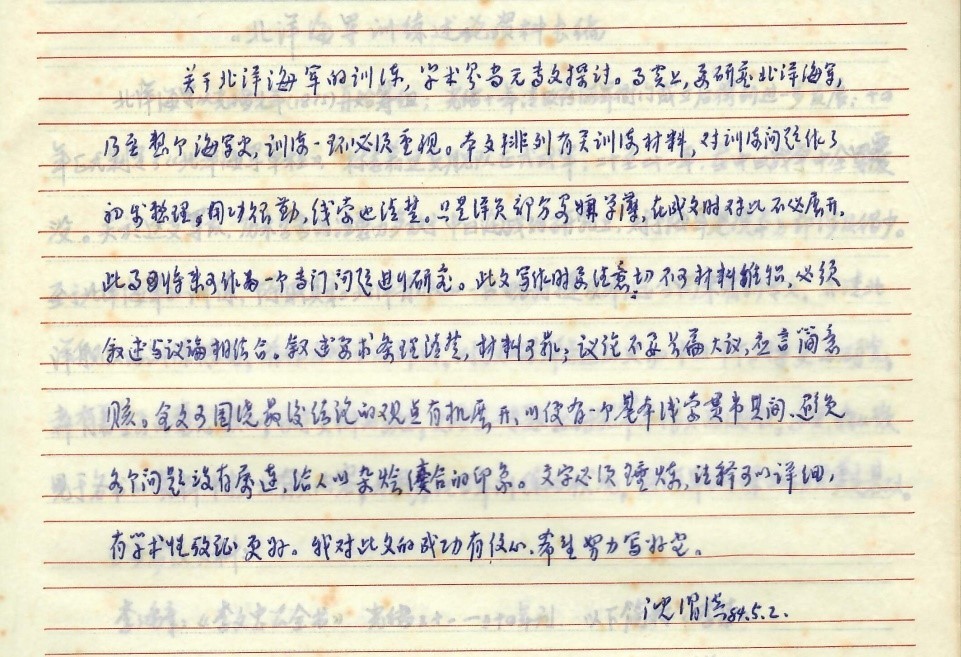 关于北洋海军的训练，学术界尚无专文探讨。事实上，要研究北洋海军，
乃至整个海军史，训练一环必须重视。本文排列有关训练材料，对训练问题作了
初步整理。用功很勤，线索也清楚。只是译员部分略嫌单薄，在成文时对此不必展开，
此事因将来可作为一个专门问题进行研究。此文写作时要注意，切不可材料堆积，必须
叙述与议论相结合。叙述要求条理清楚，材料可靠；议论不要长篇大议，应言简意
赅。全文可围绕最后结论的观点有机展开，以便有一个基本线索贯串其间，避免
各个问题没有属连，给人以杂烩凑合的印象。文字必须锤炼，注释可以详细，
有学术性考证更好。我对此文的成功有信心，希望努力写好它。
沈渭滨 84.5.2.